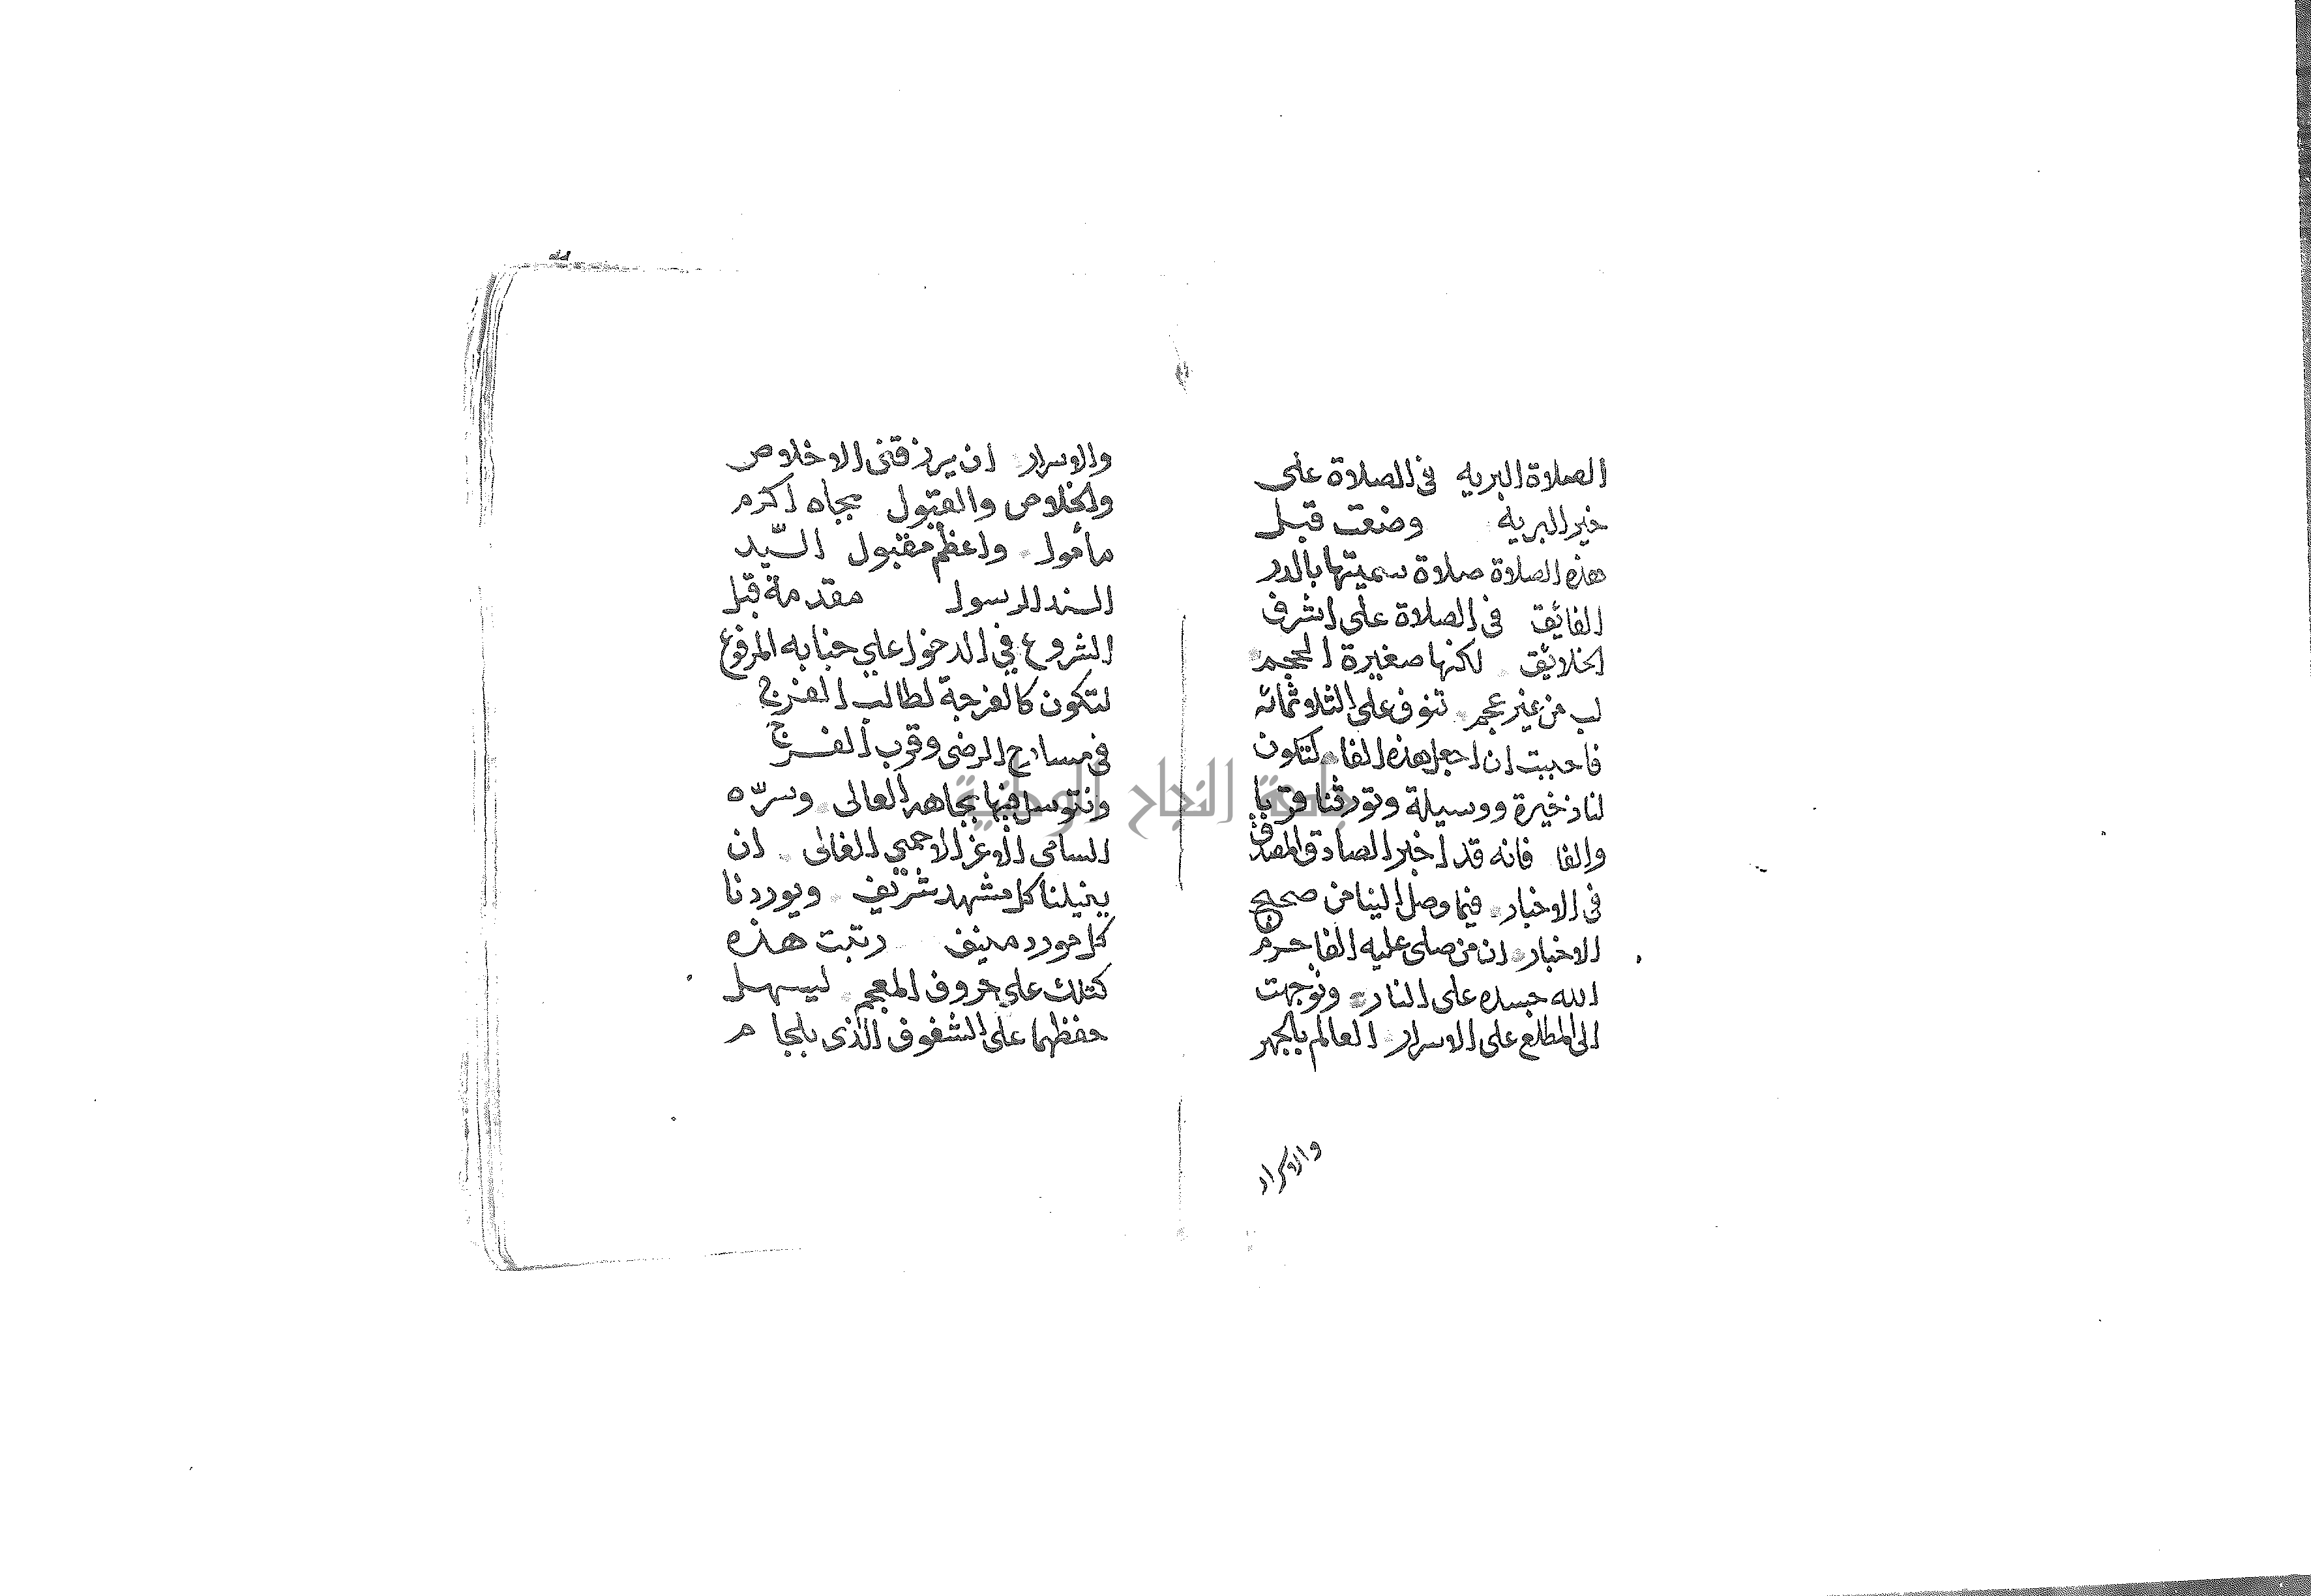 الصلاة البريه في الصلاة على
خير البريه وضعت قبل
هذه الصلاة صلاة سميتها بالدر
الفائق في الصلاة على اشرف
الخلائق لكنها صغيرة الحجم
لب من غير عجم تنوف على الثلاثمائه
فاحببت ان اجعل هذه الفا لتكون
لنا ذخيرة ووسيلة وتورثنا قربا
والفا فانه قد اخبر الصادق المصدق
في الاخبار فيما وصل الينا من صحيح
الاخبار ان من صلى عليه الفا حرم
الله جسده على النار وتوجهت
الى المطلع على الاسرار العالم بالجهر
والاسرار ان يرزقنى الاخلاص
والخلاص والقبول بجاه اكرم
مأمول واعظم مقبول السّيد
السند الرسول مقدمة قبل
الشروع في الدخول على جنابه المرفوع
لتكون كالفرجة لطالب الفرج
في مسارح الرضى وقرب الفرج
ونتوسل فيها بجاهه العالى وسرّه
السامى الاعز الاحمى الغالى ان
ينيلنا كل مشهد شريف ويوردنا
كل مورد منيف رتبت هذه
كتلك على حروف المعجم ليسهل
حفظهما على الشغوف الذى بلجام
جامعة النجاح الوطنية